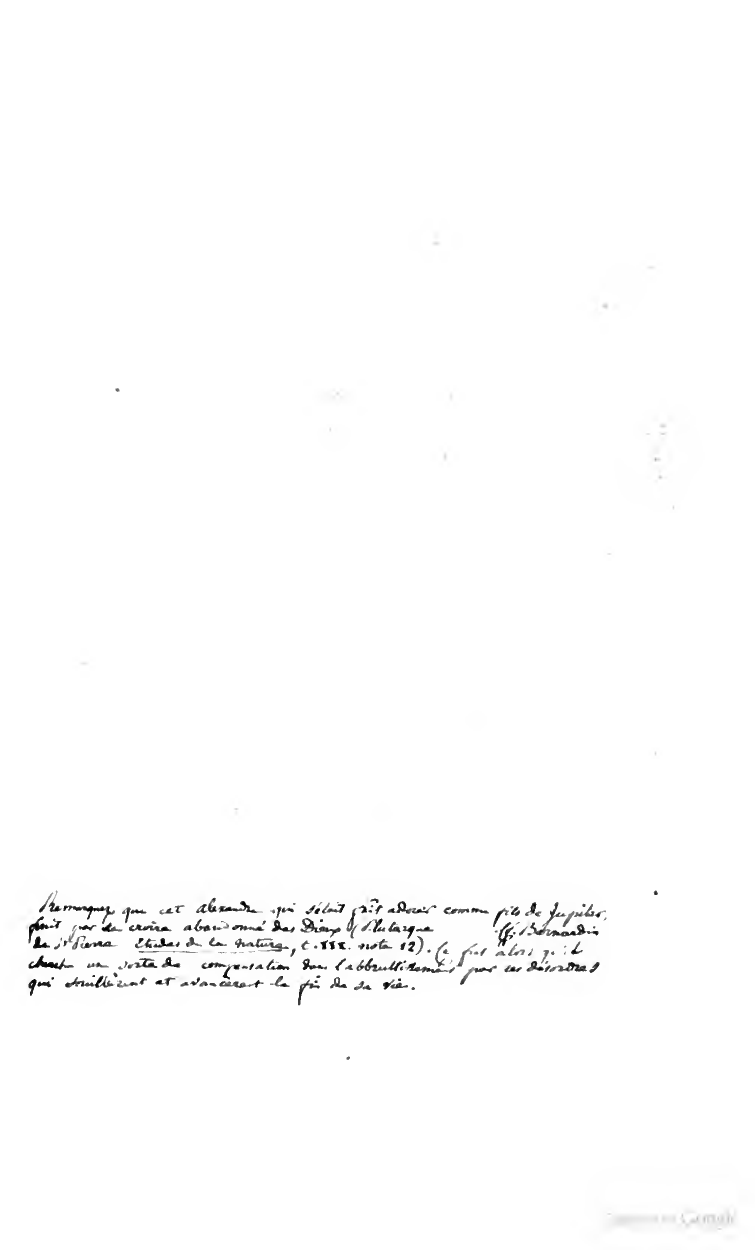 Remarquez que cet alexandre qui s'était fait adorer comme fils de Jupiter,
finit par se croire abandonné des Dieux (Plutarque cf. Bernardin
de St Pierre Etudes de la nature, t. III. note 12). Ce fut alors qu'il
chercha une sorte de compensation dans l'abbrutissement par ces désordres
qui souillèrent et avancèrent la fin de sa vie.
Google